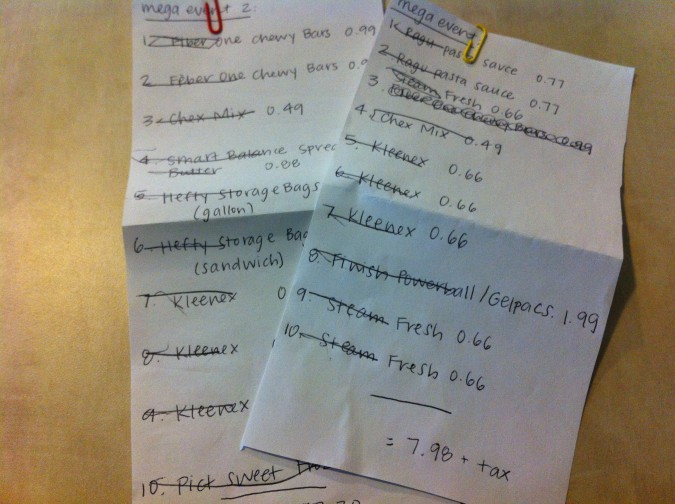 mega event 2:
1. Fiber One chewy Bars 0.99
2 Fiber One Chewy Bars
3. Chex Mix 0.49
4. Smart Balance
Butter 0.88
5. Hefty Storage Bags
(gallon)
6. Hefty Storage
(sandwich)
7. Kleenex
8. Kleenex
9. Kleenex
10. Pict Sweet
mega event
1. Ragu sauce 0.77
2 Ragu pasta sauce 0.77
3. Steam Fresh 0.66
4. Chex Mix 0.49
5. Kleenex 0.66
6. Kleenex 0.66
7. Kleenex 0.66
8. Finish Powerball/Gelpacs. 1.99
9. Steam Fresh 0.66
10. Steam Fresh 0.66
= 7.98 + tax